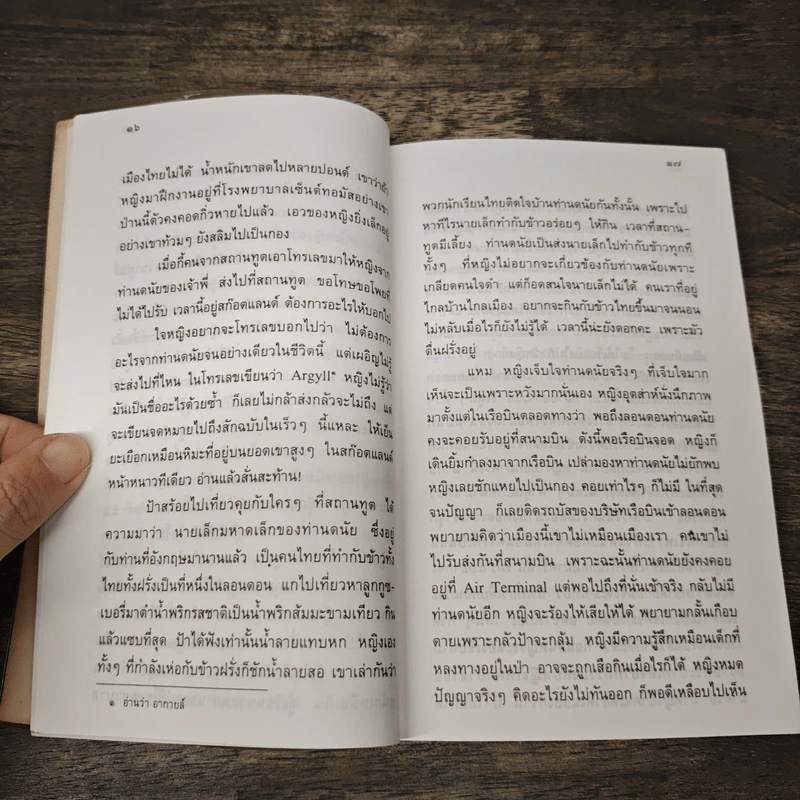 ๑๖
เมืองไทยไม่ได้ น้ำหนักเขาลดไปหลายปอนด์ เขาว่าถ้า
หญิงมาฝึกงานอยู่ที่โรงพยาบาลเซ็นต์ทอมัสอย่างเขา
ป่านนี้ตัวคงคอดกิ่วหายไปแล้ว เอวของหญิงยิ่งเล็กอยู่
อย่างเขาท้วมๆ ยังสลิมไปเป็นกอง
เมื่อกี้คนจากสถานทูตเอาโทรเลขมาให้หญิงจาก
ท่านดนัยของเจ้าพี่ ส่งไปที่สถานทูต ขอโทษขอโพยที่
ไม่ได้ไปรับ เวลานี้อยู่สก๊อตแลนด์ ต้องการอะไรให้บอกไป
ใจหญิงอยากจะโทรเลขบอกไปว่า ไม่ต้องการ
อะไรจากท่านดนัยจนอย่างเดียวในชีวิตนี้ แต่เผอิญไม่รู้
จะส่งไปที่ไหน ในโทรเลขเขียนว่า Argyll* หญิงไม่รู้ว่า
มันเป็นชื่ออะไรด้วยซ้ำ ก็เลยไม่กล้าส่งกลัวจะไม่ถึง แต่
จะเขียนจดหมายไปถึงสักฉบับในเร็วๆ นี้แหละ ให้เย็น
ยะเยือกเหมือนหิมะที่อยู่บนยอดเขาสูงๆ ในสก๊อตแลนด์
หน้าหนาวทีเดียว อ่านแล้วสั่นสะท้าน!
ป้าสร้อยไปเที่ยวคุยกับใครๆ ที่สถานทูต ได้
ความมาว่า นายเล็กมหาดเล็กของท่านดนัย ซึ่งอยู่
กับท่านที่อังกฤษมานานแล้ว เป็นคนไทยที่ทำกับข้าวทั้ง
ไทยทั้งฝรั่งเป็นที่หนึ่งในลอนดอน แกไปเที่ยวหาลูกกูซ-
เบอรี่มาตำน้ำพริกรสชาติเป็นน้ำพริกส้มมะขามเทียว กิน
แล้วแซบที่สุด ป้าได้ฟังเท่านั้นน้ำลายแทบหก หญิงเอง
ทั้งๆ ที่กำลังเห่อกับข้าวฝรั่งก็ชักน้ำลายสอ เขาเล่ากันว่า
๑ อ่านว่า อากายล์
๑๗
พวกนักเรียนไทยติดใจบ้านท่านดนัยกันทั้งนั้น เพราะไป
หาทีไรนายเล็กทำกับข้าวอร่อยๆ ให้กิน เวลาที่สถาน-
ทูตมีเลี้ยง ท่านดนัยเป็นส่งนายเล็กไปทำกับข้าวทุกที
ทั้งๆ ที่หญิงไม่อยากจะเกี่ยวข้องกับท่านดนัยเพราะ
เกลียดคนใจดำ แต่ก็อดสนใจนายเล็กไม่ได้ คนเราที่อยู่
ไกลบ้านไกลเมือง อยากจะกินกับข้าวไทยขึ้นมาจนนอน
ไม่หลับเมื่อไรก็ยังไม่รู้ได้ เวลานี้น่ะยังดอกคะ เพราะมัว
ตื่นฝรั่งอยู่
แหม หญิงเจ็บใจท่านดนัยจริงๆ ที่เจ็บใจมาก
เห็นจะเป็นเพราะหวังมากนั่นเอง หญิงอุตส่าห์นั่งนึกภาพ
มาตั้งแต่ในเรือบินตลอดทางว่า พอถึงลอนดอนท่านดนัย
คงจะคอยรับอยู่ที่สนามบิน ดังนี้พอเรือบินจอด หญิงก็
เดินยิ้มกำลงมาจากเรือบิน เปล่ามองหาท่านดนัยไม่ยักพบ
หญิงเลยชักแหยไปเป็นกอง คอยเท่าไรๆ ก็ไม่มี ในที่สุด
จนปัญญา ก็เลยติดรถบัสของบริษัทเรือบินเข้าลอนดอน
พยายามคิดว่าเมืองนี้เขาไม่เหมือนเมืองเรา คนเขาไม่
ไปรับส่งกันที่สนามบิน เพราะฉะนั้นท่านดนัยยังคงคอย
อยู่ที่ Air Terminal แต่พอไปถึงที่นั่นเข้าจริง กลับไม่มี
ท่านดนัยอีก หญิงจะร้องไห้เสียให้ได้ พยายามกลั้นเกือบ
ตายเพราะกลัวป้าจะกลุ้ม หญิงมีความรู้สึกเหมือนเด็กที่
หลงทางอยู่ในป่า อาจจะถูกเสือกินเมื่อไรก็ได้ หญิงหมด
ปัญญาจริงๆ คิดอะไรยังไม่ทันออก ก็พอดีเหลือบไปเห็น